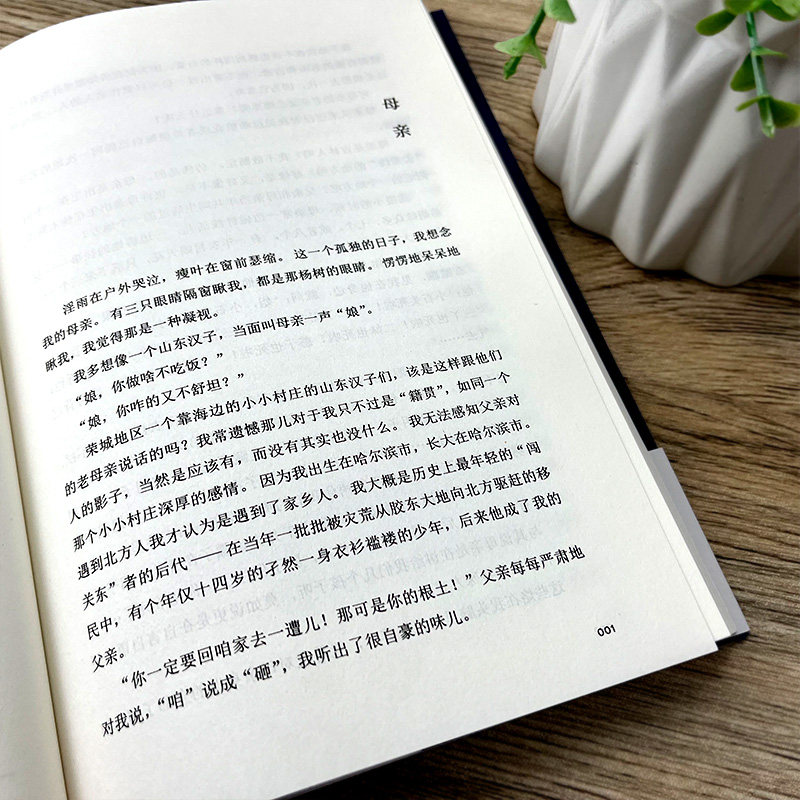 母
亲
淫雨在户外哭泣，瘦叶在窗前瑟缩。这一个孤独的日子，我想念
我的母亲。有三只眼睛隔窗瞅我，都是那杨树的眼睛。愣愣地呆呆地
瞅我，我觉得那是一种凝视。
我多想像一个山东汉子，当面叫母亲一声“娘”。
“娘，你做啥不吃饭？”
“娘，你咋的又不舒坦？”
荣城地区一个靠海边的小小村庄的山东汉子们，该是这样跟他们
的老母亲说话的吗？我常遗憾那儿对于我只不过是“籍贯”，如同一个
人的影子，当然是应该有，而没有其实也没什么。我无法感知父亲对
那个小小村庄深厚的感情。因为我出生在哈尔滨市，长大在哈尔滨市。
遇到北方人我才认为是遇到了家乡人。我大概是历史上最年轻的“闯
关东”者的后代——在当年一批批被灾荒从胶东大地向北方驱赶的移
民中，有个年仅十四岁的孑然一身衣衫褴褛的少年，后来他成了我的
父亲。
“你一定要回咱家去一遭儿！那可是你的根土！”父亲每每严肃地
对我说，“咱”说成“砸”，我听出了很自豪的味儿。
001